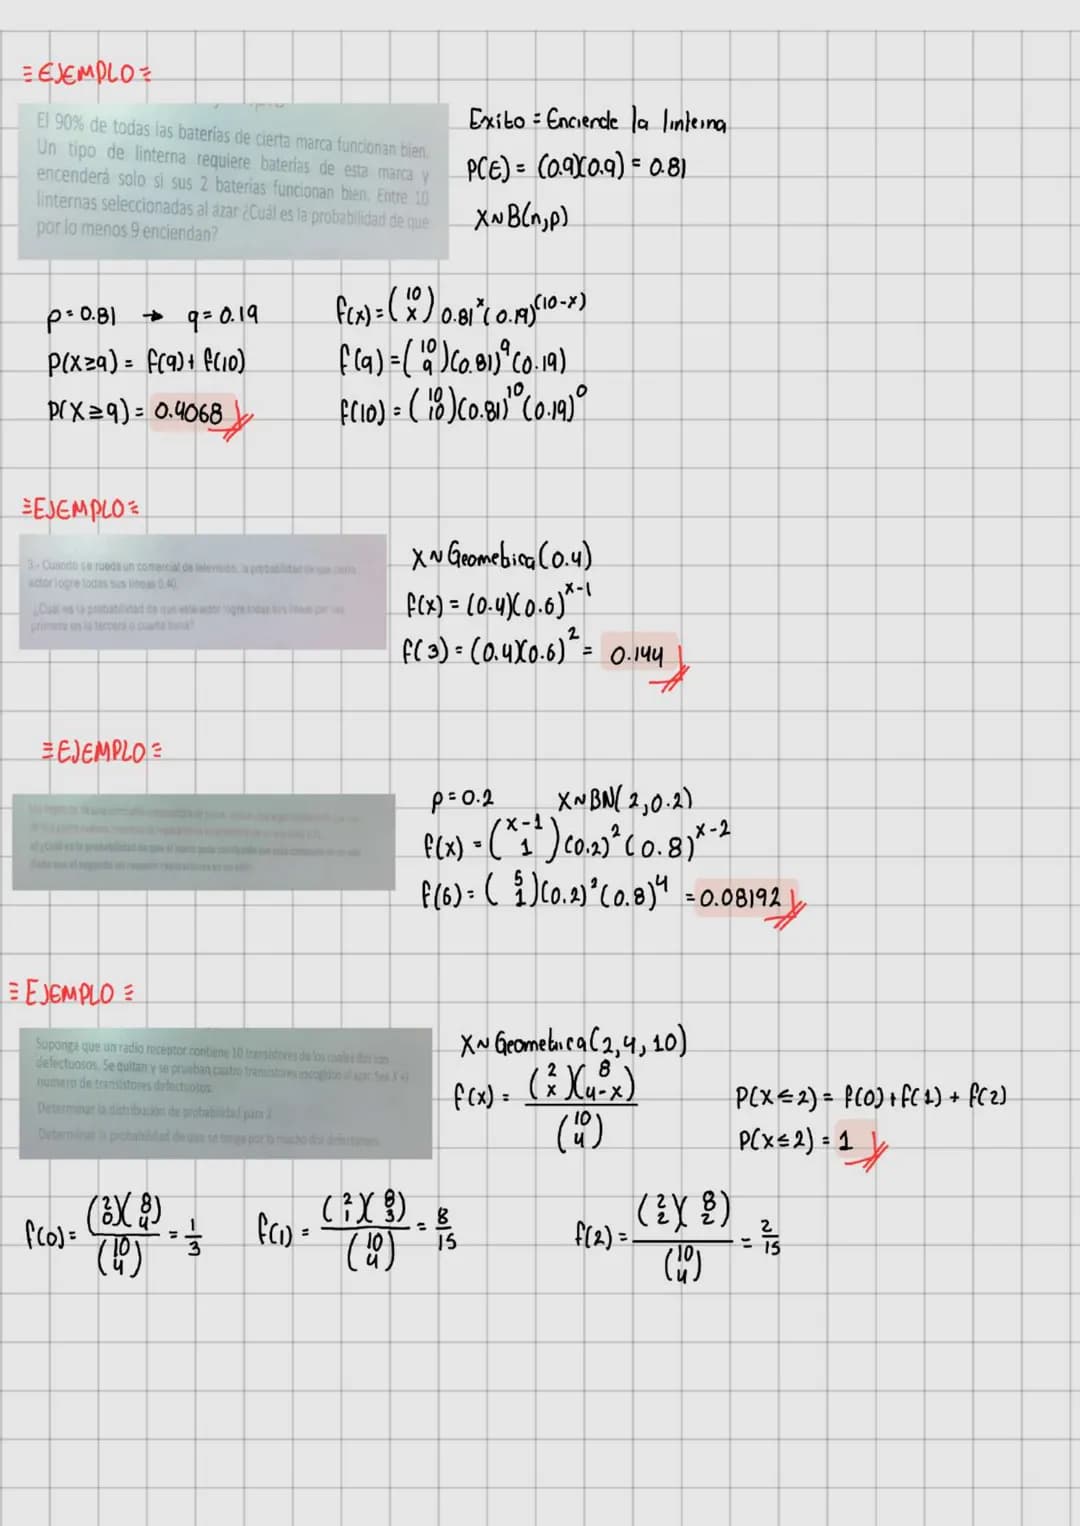 EJEMPLO
El 90% de todas las baterías de cierta marca funcionan bien.
Un tipo de linterna requiere baterías de esta marca y
encenderá solo si sus 2 baterías funcionan bien. Entre 10
linternas seleccionadas al azar ¿Cuál es la probabilidad de que
por lo menos 9 enciendan?
Exito = Enciende la linterna
P(E) = (0.9)(0.9) = 0.81
X~B(n,p)
p=0.81 → q=0.19
P(x≥9) = f(9)+f(10)
P(X≥9) = 0.4068
f(x) = (10 x) 0.81^x (0.19)^(10-x)
f(9) = (10 9)(0.81)^9 (0.19)
f(10) = (10 10)(0.81)^10 (0.19)^0
EJEMPLO
3.- Cuando se rueda un comercial de televisión, la probabilidad de que cierto
actor logre todas sus líneas 0.40.
¿Cuál es la probabilidad de que este actor logre todas sus líneas por vez
primera en la tercera o cuarta toma?
X~Geometrica(0.4)
f(x) = (0.4)(0.6)^x-1
f(3) = (0.4)(0.6)^2 = 0.144
EJEMPLO
p=0.2 X~BN(2,0.2)
f(x) = (x-1 1)(0.2)^2 (0.8)^x-2
f(6) = (5 1)(0.2)^2 (0.8)^4 = 0.08192
EJEMPLO
Suponga que un radio receptor contiene 10 transistores de los cuales dos son
defectuosos. Se quitan y se prueban cuatro transistores escogidos al azar. Sea X el
número de transistores defectuosos.
Determinar la distribución de probabilidad para
Determinar la probabilidad de que se tenga por lo mucho dos defectuosos.
X~Geometrica(2,4,10)
f(x) = (2 x)(8 4-x) / (10 4)
P(X≤2) = f(0)+f(1)+f(2)
P(X≤2) = 1
f(0) = (2 0)(8 4) / (10 4) = 1/3
f(1) = (2 1)(8 3) / (10 4) = 8/15
f(2) = (2 2)(8 2) / (10 4) = 2/15